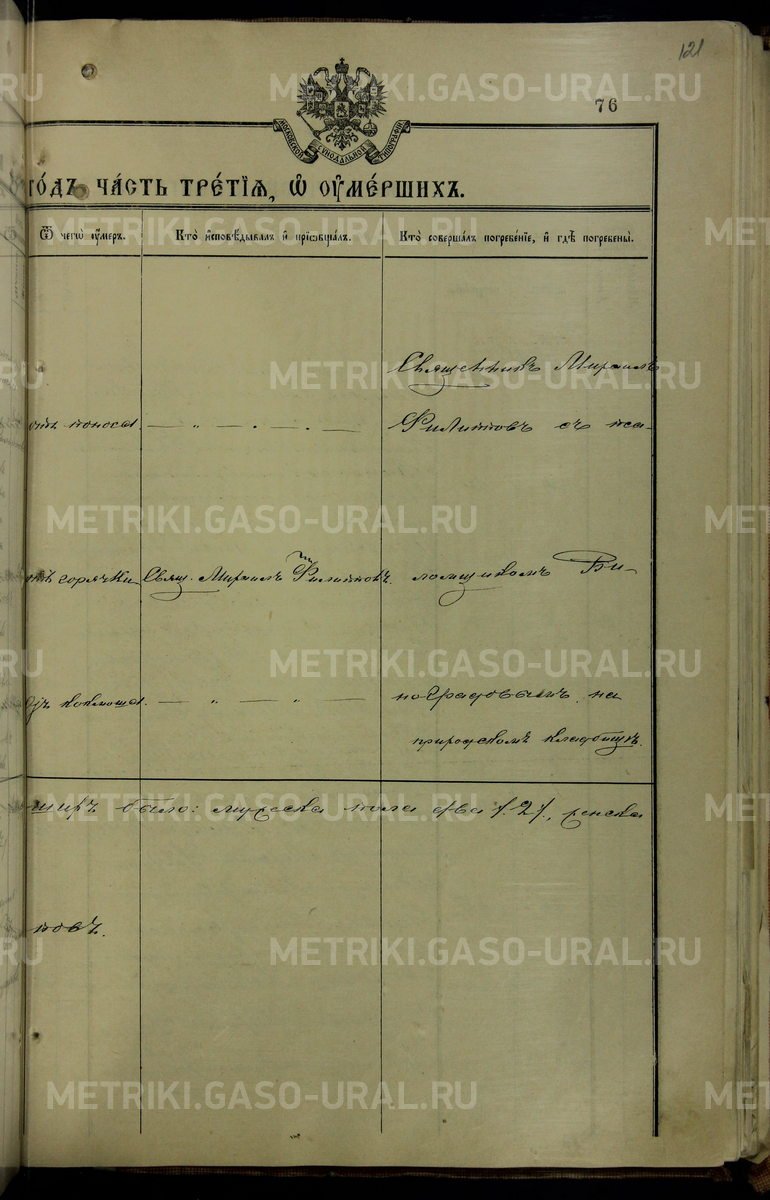 121
76
МОСКОВСКОЙ СѴНОДАЛЬНОЙ ТИПОГРАФІИ
го́дъ ча́сть тре́тїѧ, ѡ҆ ᲂу҆ме́ршихъ.
Ѿ чегѡ̀ ᲂу҆́мер.
Кто̀ и҆сповѣ́дывалъ и҆ прїѡбща́лъ.
Кто̀ соверша́лъ погребе́нїе, и҆ гдѣ̀ погребены̀.
Священникъ Михаилъ
отъ поноса
Филипповъ съ пса-
отъ горячки
Свящ. Михаилъ Филипповъ.
ломщикомъ Ви-
отъ коклюша
ноградовымъ на
приходскомъ кладбищѣ.
шихъ было: мужеска пола два /2/, женска
повъ.
METRIKI.GASO-URAL.RU